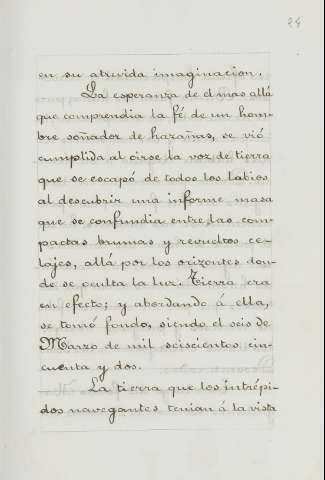 24
en su atrevida imaginacion.
La esperanza de el mas allá
que comprendia la fé de un hom-
bre soñador de hazañas, se vió
cumplida al oirse la voz de tierra
que se escapó de todos los labios
al descubrir una informe masa
que se confundia entre las com-
pactas brumas y revueltos ce-
lajes, allá por los orizontes don-
de se oculta la luz. Tierra era
en efecto; y abordando á ella,
se tomó fondo, siendo el seis de
Marzo de mil seiscientos cin-
cuenta y dos.
La tierra que los intrépi-
dos navegantes tenian á la vista